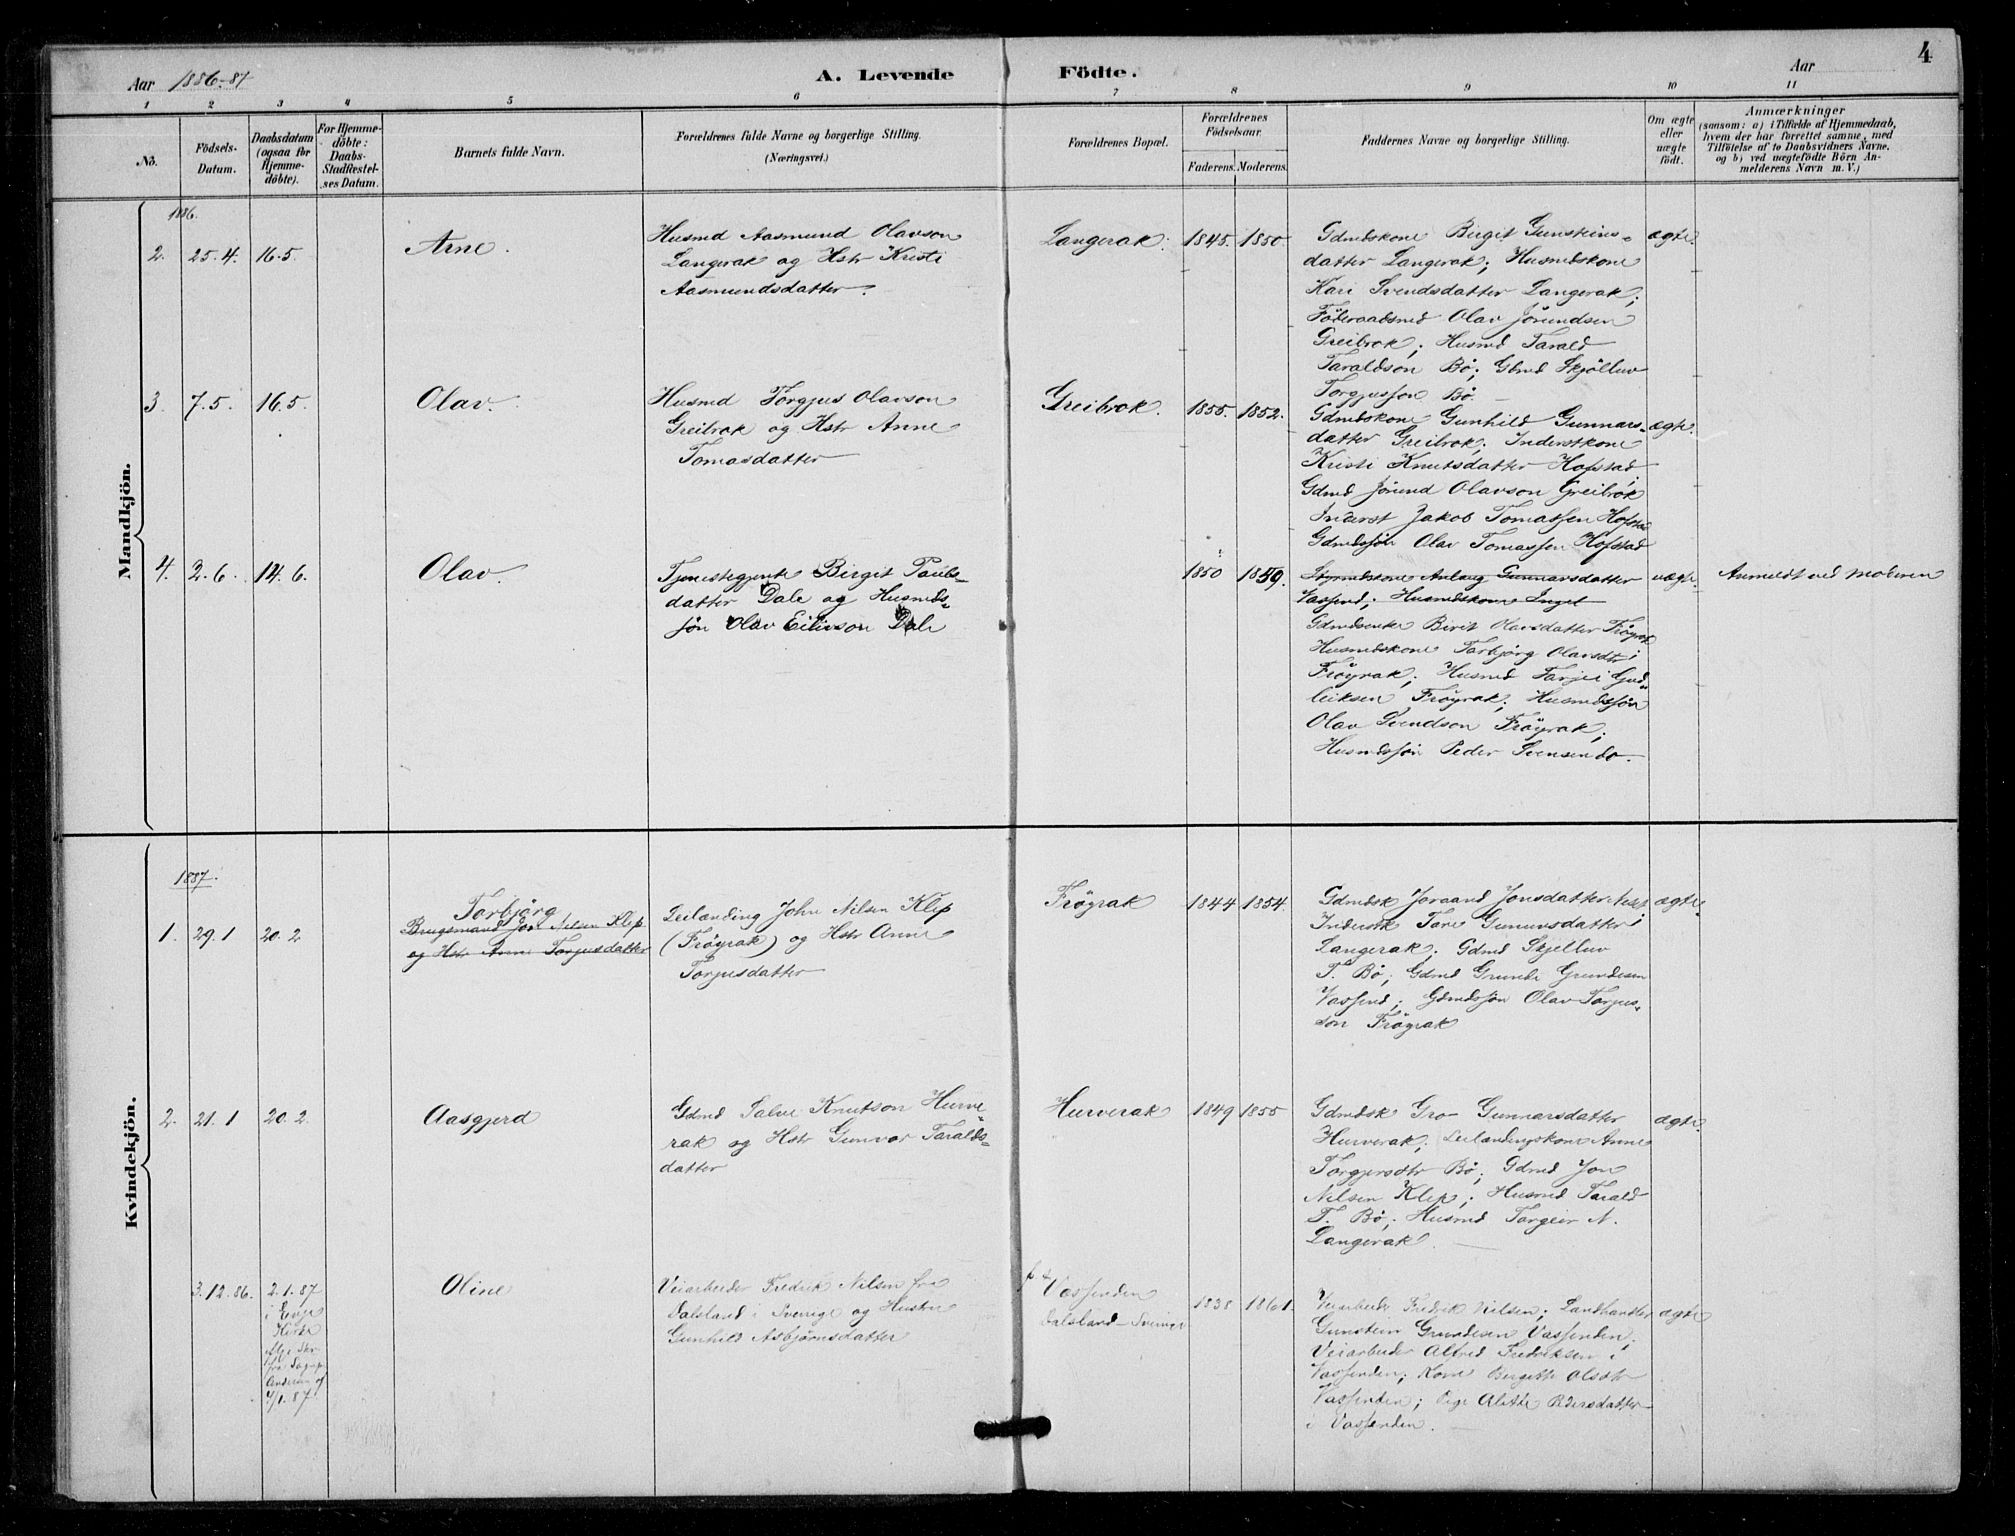 4
Aar 1886-87
A. Levende Födte.
Aar
1 2 3 4 5 6 7 8 9 10 11
No.
Födsels-Datum.
Daabsdatum (ogsaa for Hjemme-döbte).
For Hjemme-döbte: Daabs-Stadfæstel-ses Datum.
Barnets fulde Navn.
Forældrenes fulde Navne og borgerlige Stilling.
(Næringsvei.)
Forældrenes Bopæl.
Forældrenes Födselsaar.
Faderens. Moderens.
Faddernes Navne og borgerlige Stilling.
Om ægte eller uægte födt.
Anmærkninger
(saasom: a) i Tilfælde af Hjemmedaab,
hvem der har forrettet samme, med
Tilföielse af to Daabsvidners Navne.
og b) ved uægtefödte Börn An-
melderens Navn m. V.)
Mandkjön.
1886.
2. 25.4. 16.5. Arne.
Husmd Aasmund Olavson
Langerak og Hstr Kristi
Aasmundsdatter.
Langerak. 1845. 1850.
Gdmdskone Birgit Gunsteins-
datter Langerak; Husmdskone
Kari Svendsdatter Langerak;
Föderaadsmd Olav Jörundsen
Greibrok; Husmd Tarald
Taraldson Bö; Gbmd Skjölluv
Torgjusson Bö.
ægte.
3. 7.5. 16.5. Olav.
Husmd Torgjus Olavson
Greibrok og Hstr Anne
Tomasdatter
Greibrok. 1855. 1852.
Gdmdskone Gunhild Gunnars-
datter Greibrok; Inderstkone
Kristi Knutsdatter Hofstad;
Gdmd Jörund Olavson Greibrok
Inderst Jakob Tomassen Hofstad
Gdmdssön Olav Tomassen Hofstad
ægte.
4. 2.6. 14.6. Olav.
Tjenestegjente Birgit Pauls-
datter Dale og Husmds-
sön Olav Eilivson Dale
1850 1859.
Vassend; Husmdskone Ingel
Gdmdsenke Birit Olavsdatter Fröyrak
Husmdskone Torbjörg Olavsdtr
Fröyrak; Husmd Tarjei Gud-
leiksen Fröyrak; Husmdssön
Olav Svendson Fröyrak;
Husmdssön Peder Svensen do.
uægte.
Anmeldt ved Moderen
Kvindekjön.
1887.
1. 29.1 20.2
Torbjörg
Brugsmand Jon Nelsen Klep
og Hstr Anne Torjusdatter
Leilænding John Nilsen Klep
(Fröyrak) og Hstr Anne
Torjusdatter
Fröyrak 1844 1854.
Gdmdsk Joraand Jonsdatter
Inderstk Tore Gunnarsdatter
Langerak; Gdmd Skjelluv
T. Bö; Gdmd Grunde Grundesen
Vassend; Gdmdssön Olav Torjus-
son Fröyrak
ægte.
2. 21.1 20.2. Aasgjerd
Gdmd Salve Knutson Hurve-
rak og Hstr Gunvor Taralds-
datter
Hurverak 1849 1855
Gdmdsk Gro Gunnarsdatter
Hurverak; Leilændingskone Anne
Torgjersdtr Bö; Gdmd Jon
Nilsen Klep; Husmd Tarald
T. Bö; Husmd Torgeir N.
Langerak.
ægte.
3.12.86. 2.1.87
i Evje
Kirke
4/1.87.
Oline
Veiarbeider Fredrik Nilsen fra
Dalsland i Sverige og Hustru
Gunhild Asbjörnsdatter
p t Vassenden
Dalsland Sverige
1838 1861.
Veiarbeider Fredrik Nilsen; Landhandler
Gunstein Grundesen Vassenden;
Veiarbeider Alfred Fredriksen i
Vassenden; Kone Bergitte Olsdtr
Vassenden; Pige Alette Pedersdatter
i Vassenden.
ægte